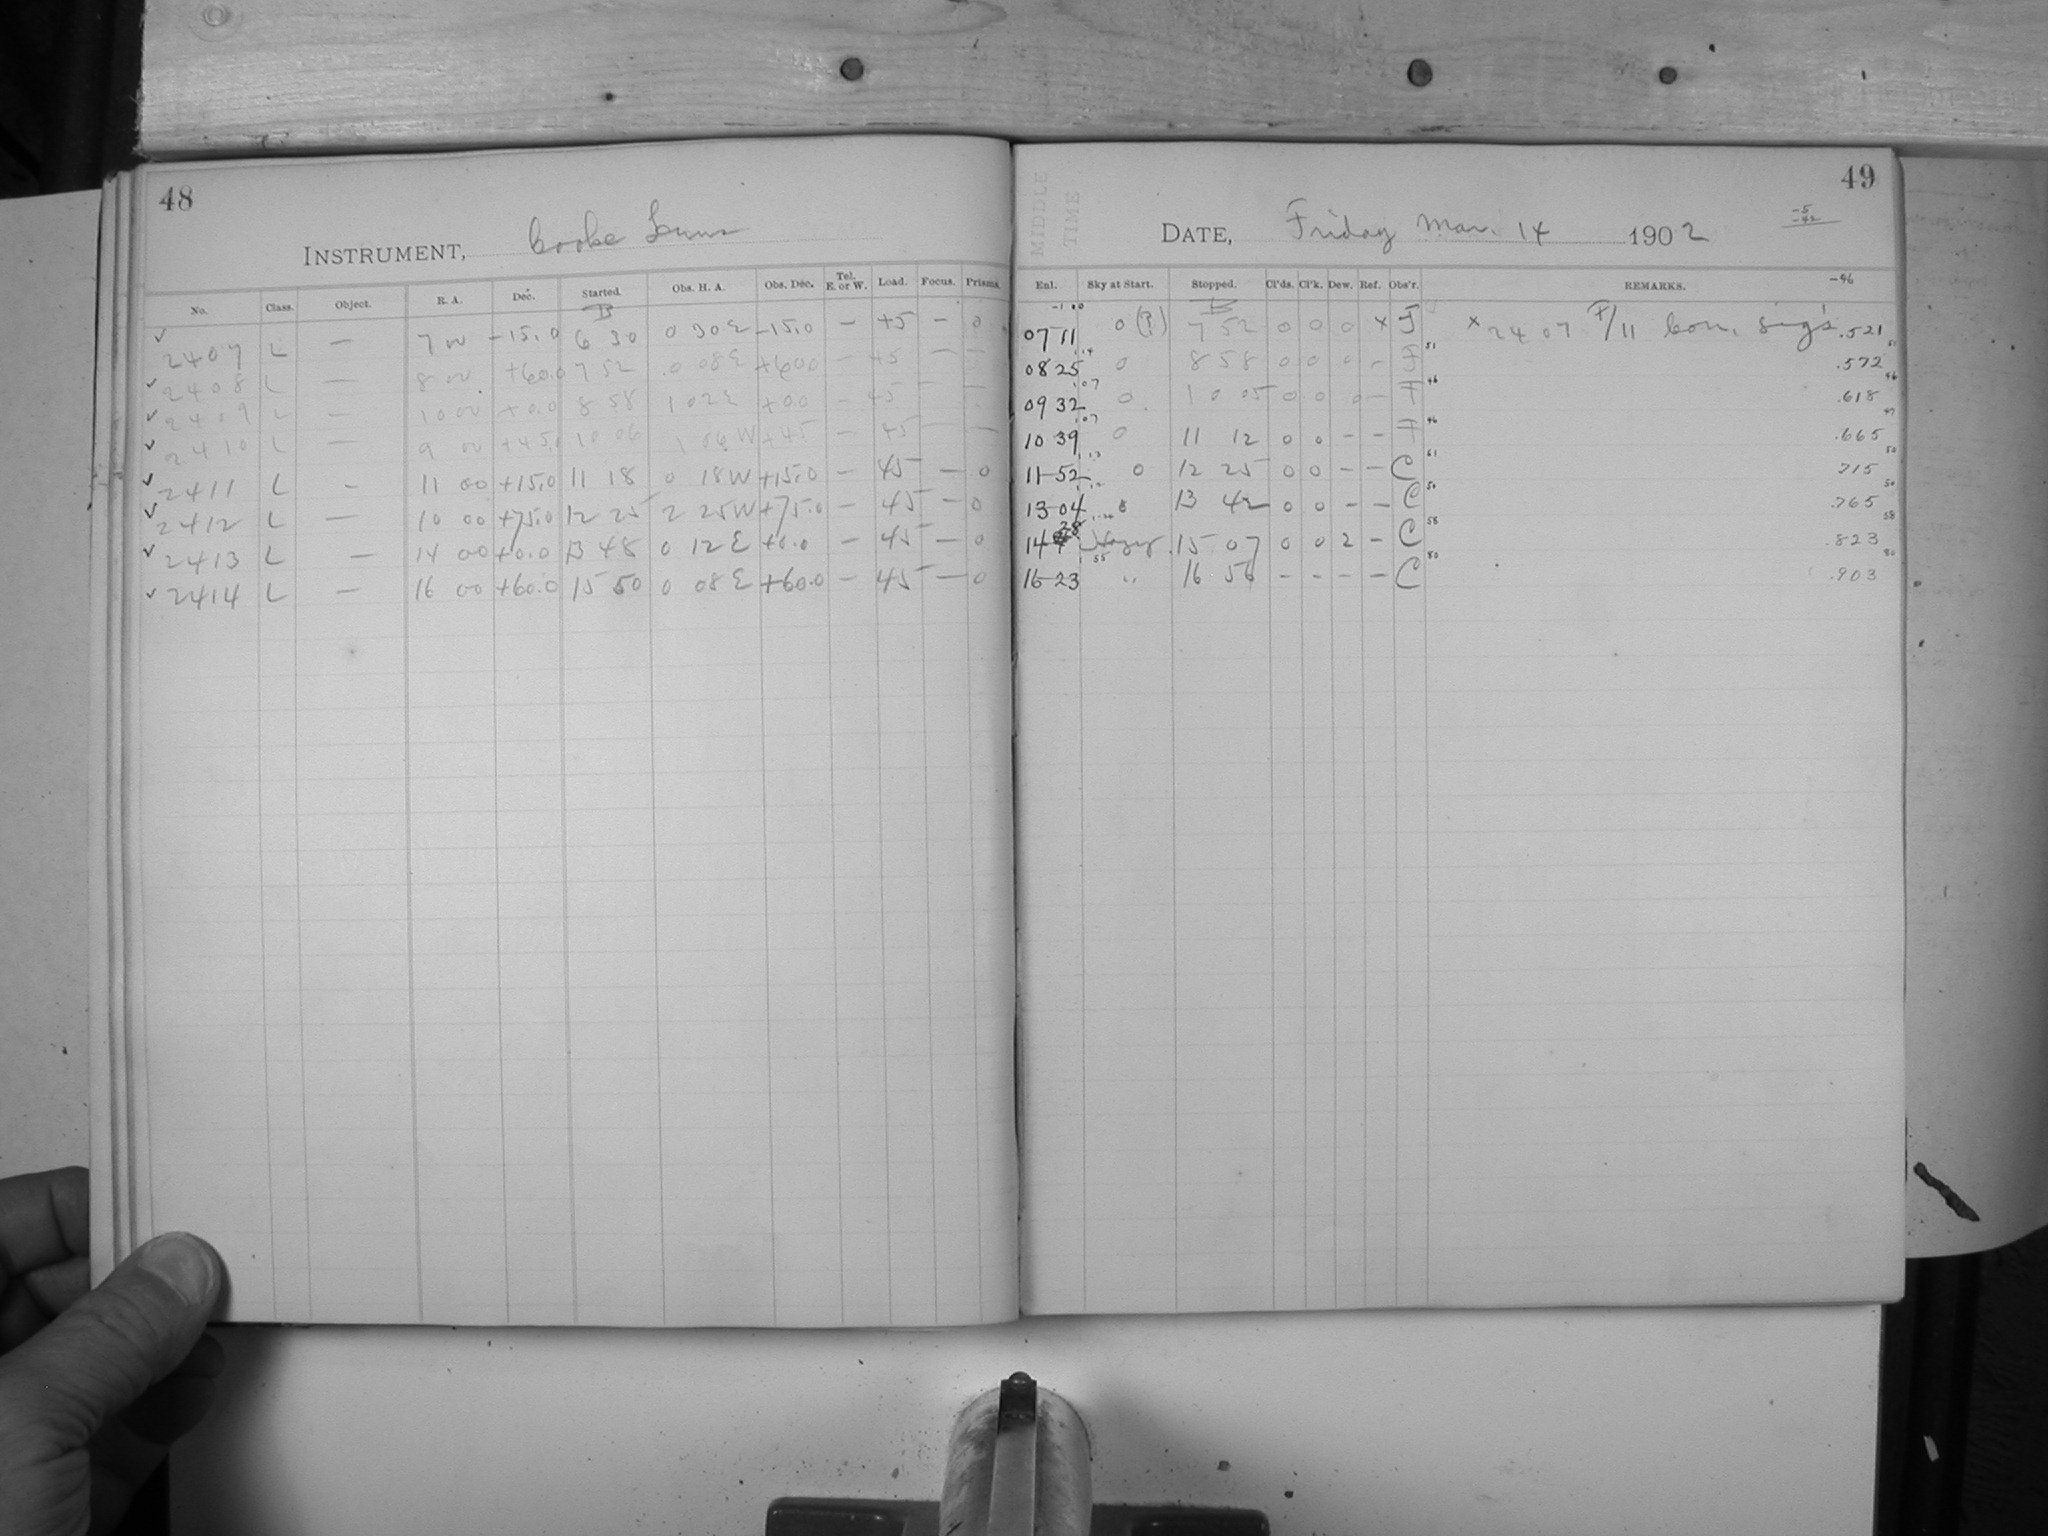 48
INSTRUMENT, Cooke Lens
No. Class. Object. R. A. Dec. Started. Obs. H. A. Obs. Dec. Tel. E. or W. Load. Focus. Prisms.
✓ 2407 L — 7 00 -15.0 6 30 0 30 E -15.0 — 45 — 0
✓ 2408 L — 8 00 +60.0 7 52 0 08 E +60.0 — 45 — —
✓ 2409 L — 10 00 +0.0 8 58 1 02 E +0.0 — 45 —
✓ 2410 L — 9 00 +45.0 10 06 1 06 W +45 — 45 — —
✓ 2411 L — 11 00 +15.0 11 18 0 18 W +15.0 — 45 — 0
✓ 2412 L — 10 00 +75.0 12 25 2 25 W +75.0 — 45 — 0
✓ 2413 L — 14 00 +0.0 13 48 0 12 E +0.0 — 45 — 0
✓ 2414 L — 16 00 +60.0 15 50 0 08 E +60.0 — 45 — 0
49
MIDDLE TIME
DATE, Friday Mar. 14 1902
-5
-42
-46
Enl. Sky at Start. Stopped. Cl'ds. Cl'k. Dew. Ref. Obs'r. REMARKS.
07 11 0 (?) 7 52 0 0 0 x F x 2407 F/11 Con. seg's .521
08 25 0 8 58 0 0 0 - F 51 .572 51
09 32 0 10 05 0 0 0 — F 46 .618 46
10 39 0 11 12 0 0 - - F 46 .665 47
11-52 0 12 25 0 0 - - C 51 .715 50
13-04 13 42 0 0 - - C 50 .765 50
14 28 Hazy 15 07 0 0 2 - C 58 .823 58
16-23 " 16 56 - - - - C 80 .903 80